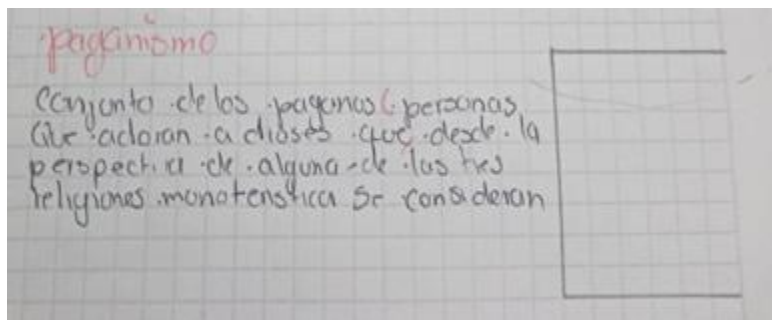 paganismo
Conjunto de los paganos (personas
que adoran a dioses que desde la
perspectiva de alguna de las tres
religiones monotenstica se consideran